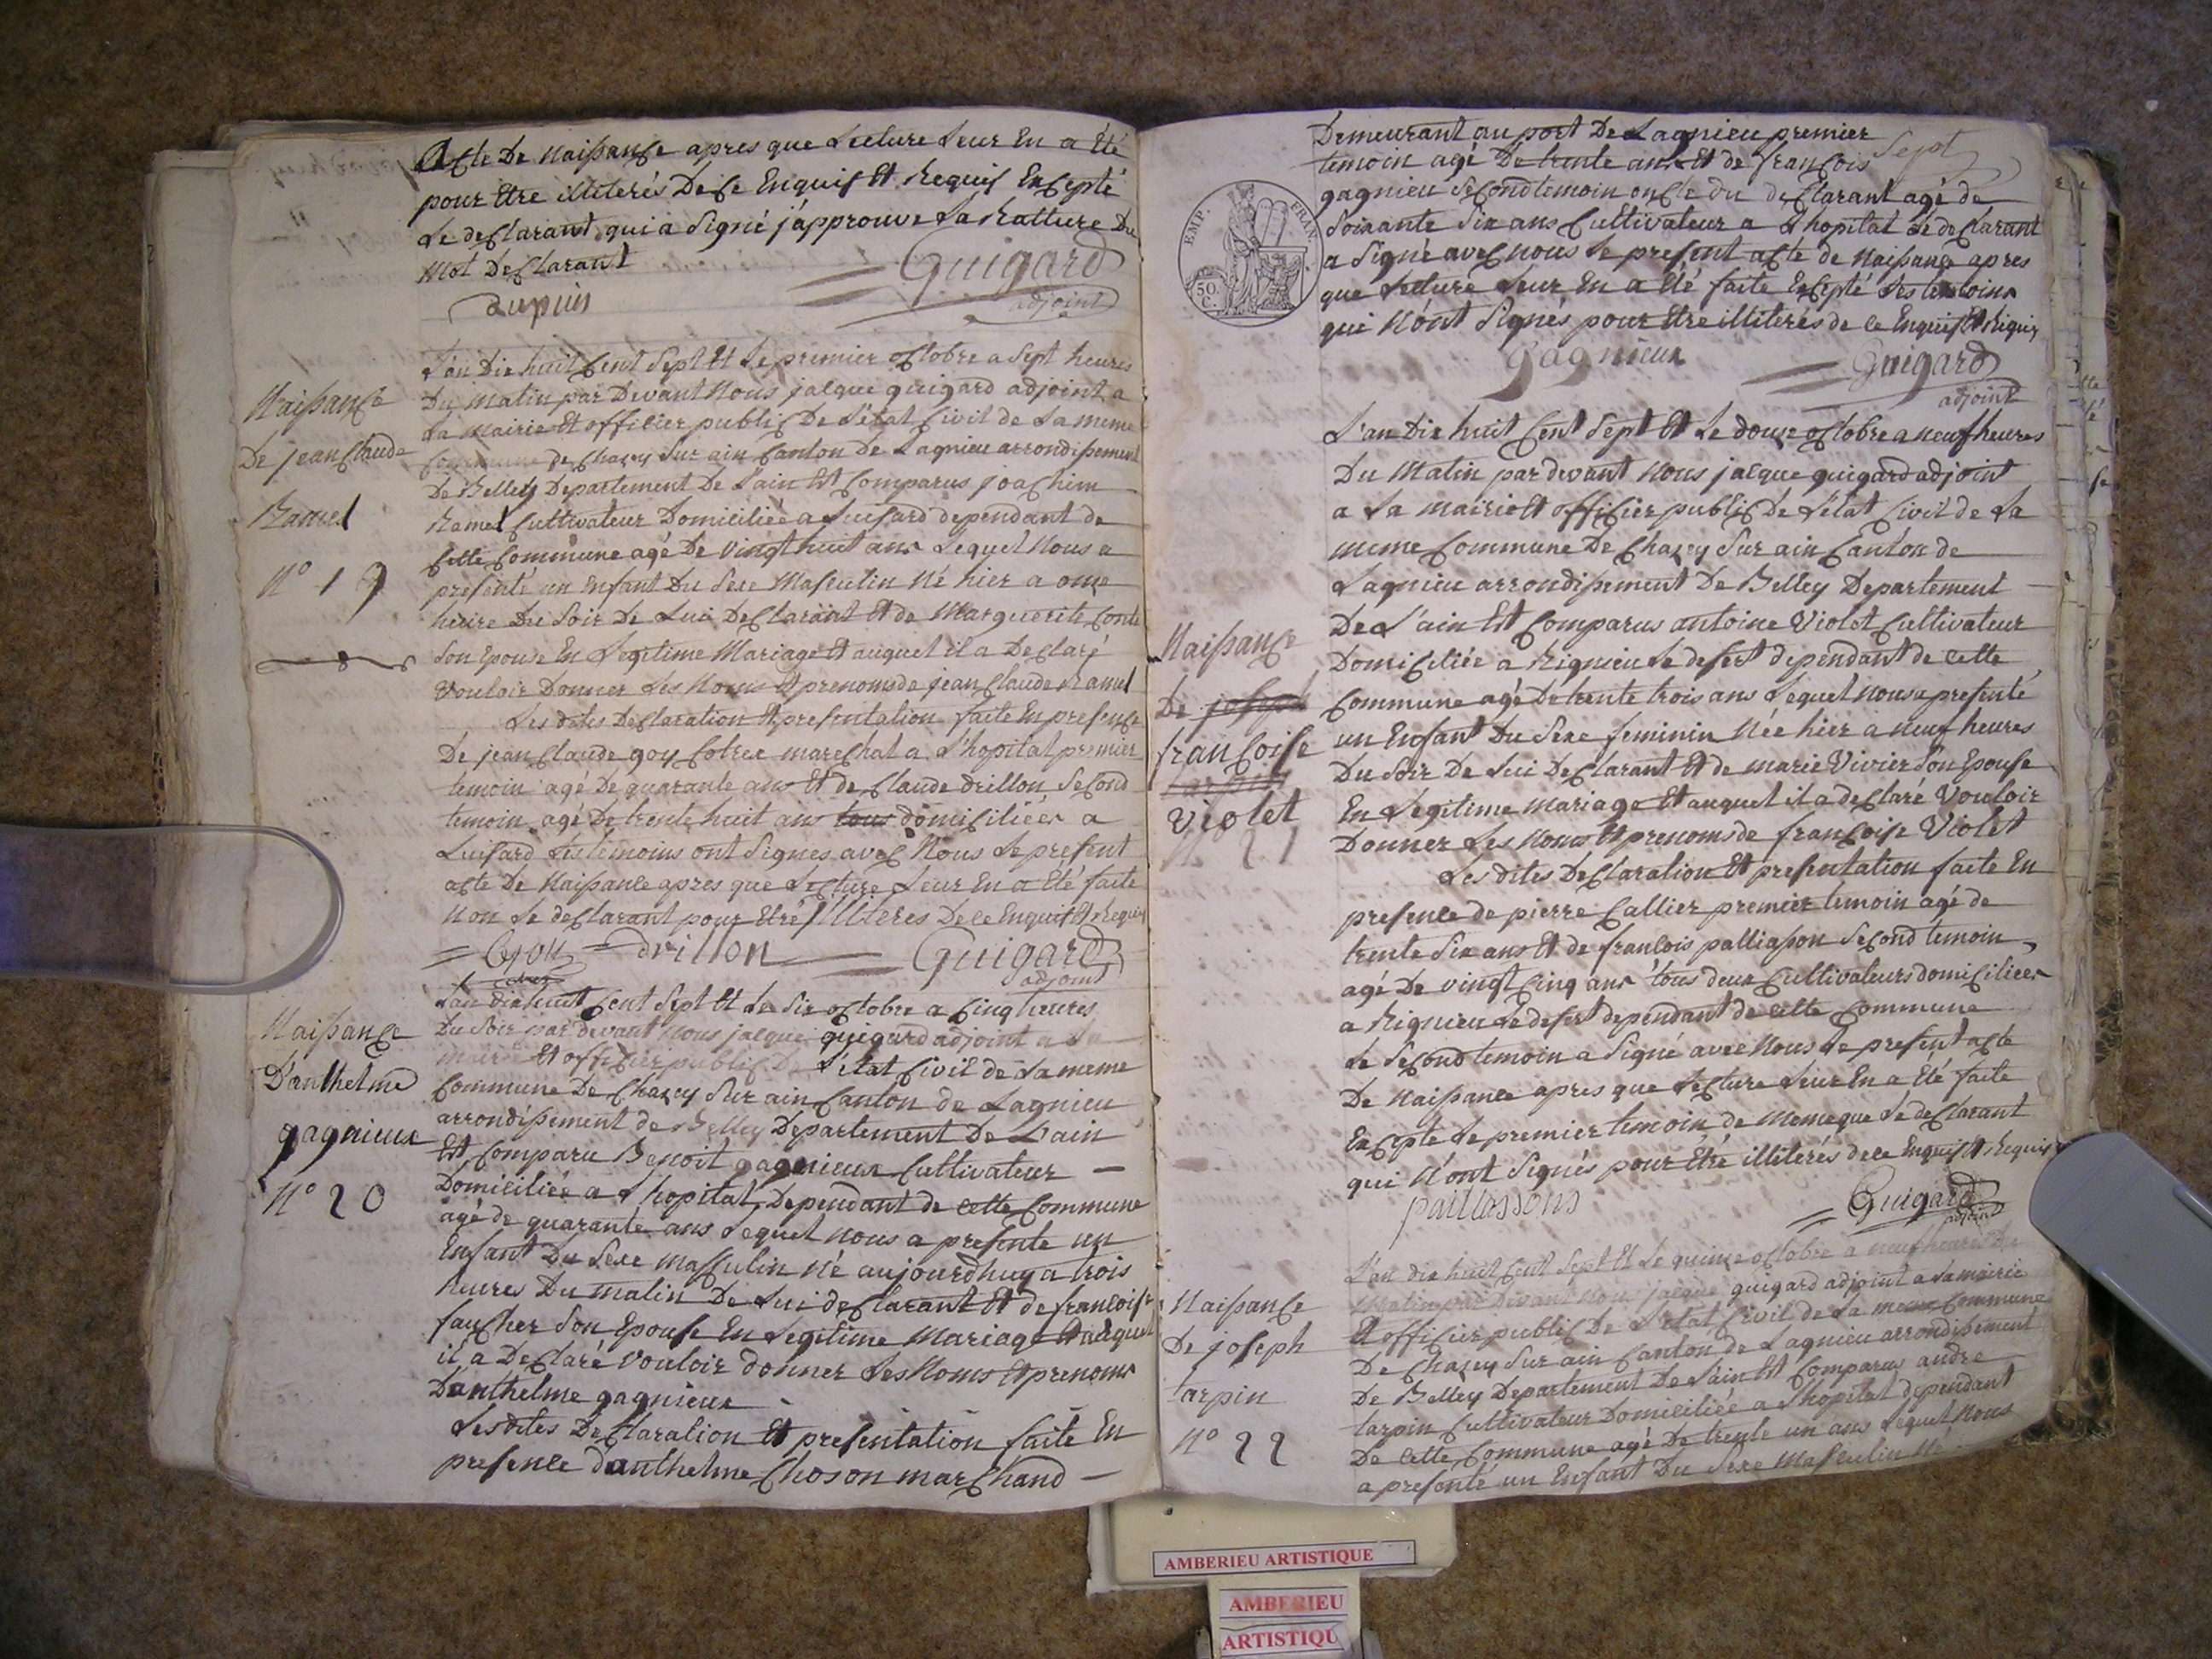 Acte De Naissance apres que Lecture Leur En a Eté
pour Etre illiterés De Ce Enquis Et Requis Excepté
Le declarant qui a Signé j'approuve La Ratture Du
Mot Declarant
Guigard
adjoint
dupuis
L'an Dix huit Cent Sept Et Le premier octobre a Sept heures
Du Matin par Devant Nous jacque guigard adjoint a
La Mairie Et officier public De L'état Civit de La meme
Commune de Chazey Sur ain Canton De Lagnieu arrondissement
De Belley Departement De L'ain Est Comparus joachim
Ramel Cultivateur Domiciliée a Luisard dependant de
Cette Commune agé De vingt huit ans Lequel Nous a
presenté un Enfant Du Sexe Masculin Né hier a onze
heure Du Soir De Lui Declarant Et de Marguerite Conte
Son Epouse En Legitime Mariage Et auquel il a Declaré
Vouloir Donner Les Noms Et prenoms de jean Claude Ramel
Les dites Declaration Et presentation faite En presence
De jean Claude goy Cotrex marechal a L'hopital premier
temoin agé De quarante ans Et de Claude drillon Second
temoin agé De trente huit ans tous domiciliées a
Luisard Les temoins ont Signes avec Nous Le present
acte De Naissance apres que Lecture Leur En a Eté faite
Non Le declarant pour Etre illiteres De Ce Enquis Et Requis
Goy Drillon Guigard
adjoint
Naissance
De jean Claude
Ramel
N° 19
L'an dix huit Cent Sept Et Le Six octobre a Cinq heures
Du Soir par devant Nous jacque guigard adjoint a La
mairie Et officier public De L'état Civil de La meme
Commune De Chazey Sur ain Canton de Lagnieu
arrondissement de Belley Departement De L'ain
Est Comparu Benoit gagnieux Cultivateur
Domiciliée a L'hopital, Dependant de cette Commune
agé de quarante ans Lequel Nous a presente un
Enfant Du Sexe Masculin Né aujourdhuy a trois
heures Du Matin De Lui declarant Et de francoise
faucher Son Epouse En Legitime Mariage Et auquel
il a Declaré Vouloir donner Les Noms Et prenoms
D'anthelme gagnieux
Les dites Declaration Et presentation faite En
presence d'anthelme Choson marchand
Naissance
D'anthelme
gagnieux
N° 20
Sept
Demeurant au port De Lagnieu premier
temoin agé De trente ans Et de francois
gagnieu Second temoin oncle du declarant agé de
Soixante Six ans Cultivateur a L'hopital Le declarant
a Signé avec Nous Le present acte de Naissance apres
que Lecture Leur En a Eté faite Excepté Les temoins
qui N'ont Signés pour Etre illiterés de Ce Enquis Et Requis
gagnieux Guigard
adjoint
EMP. FRAN.
50 C.
L'an Dix huit Cent Sept Et Le douze octobre a neuf heures
Du Matin par devant Nous jacque guigard adjoint
a La Mairie Et officier public De L'état Civil de La
meme Commune De Chazey Sur ain Canton de
Lagnieu arrondissement De Belley Departement
De L'ain Est Comparus antoine Violet Cultivateur
Domiciliée a Rignieu Le desert dependant de cette
Commune agé De trente trois ans Lequel Nous a presenté
un Enfant Du Sexe feminin Née hier a neuf heures
Du Soir De Lui Declarant Et de marie Vivier Son Epouse
En Legitime Mariage Et auquel il a declaré Vouloir
Donner Les Noms Et prenoms de francoise Violet
Les dites Declaration Et presentation faite En
presence de pierre Callier premier temoin agé de
trente Six ans Et de francois palliasson Second temoin
agé De vingt Cinq ans tous deux Cultivateurs domiciliées
a Rignieu Le desert dependant de cette Commune
Le Second temoin a Signé avec Nous Le present acte
De Naissance apres que Lecture Leur En a Eté faite
Excepte Le premier temoin de Meme que Le declarant
qui N'ont Signés pour Etre illiterés de Ce Enquis Et Requis
paillassons Guigard
adjoint
Naissance
De joseph
francoise
tarpin
Violet
N° 21
L'an dix huit Cent Sept Et Le quinze octobre a neuf heures Du
Matin par Devant Nous jacque guigard adjoint a La mairie
Et officier public De L'état Civil de La meme Commune
De Chazey Sur ain Canton de Lagnieu arrondissement
De Belley Departement De L'ain Est Comparus andre
tarpin Cultivateur Domiciliée a L'hopital dependant
De cette Commune agé De trente un ans Lequel Nous
a presenté un Enfant Du Sexe Masculin Né
Naissance
De joseph
tarpin
N° 22
AMBERIEU ARTISTIQUE
AMBERIEU
ARTISTIQU